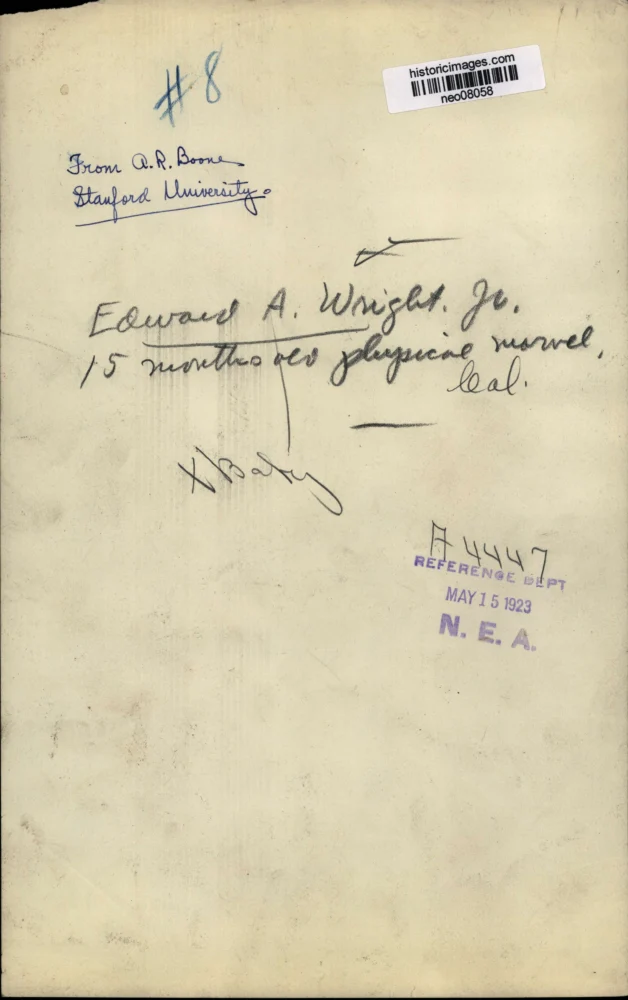 # 8
historicimages.com
neo08058
From A.R. Boone
Stanford University.
Edward A. Wright. Jr.
15 months old physical marvel,
Cal.
X Baby
A 4447
REFERENCE DEPT
MAY 15 1923
N. E. A.